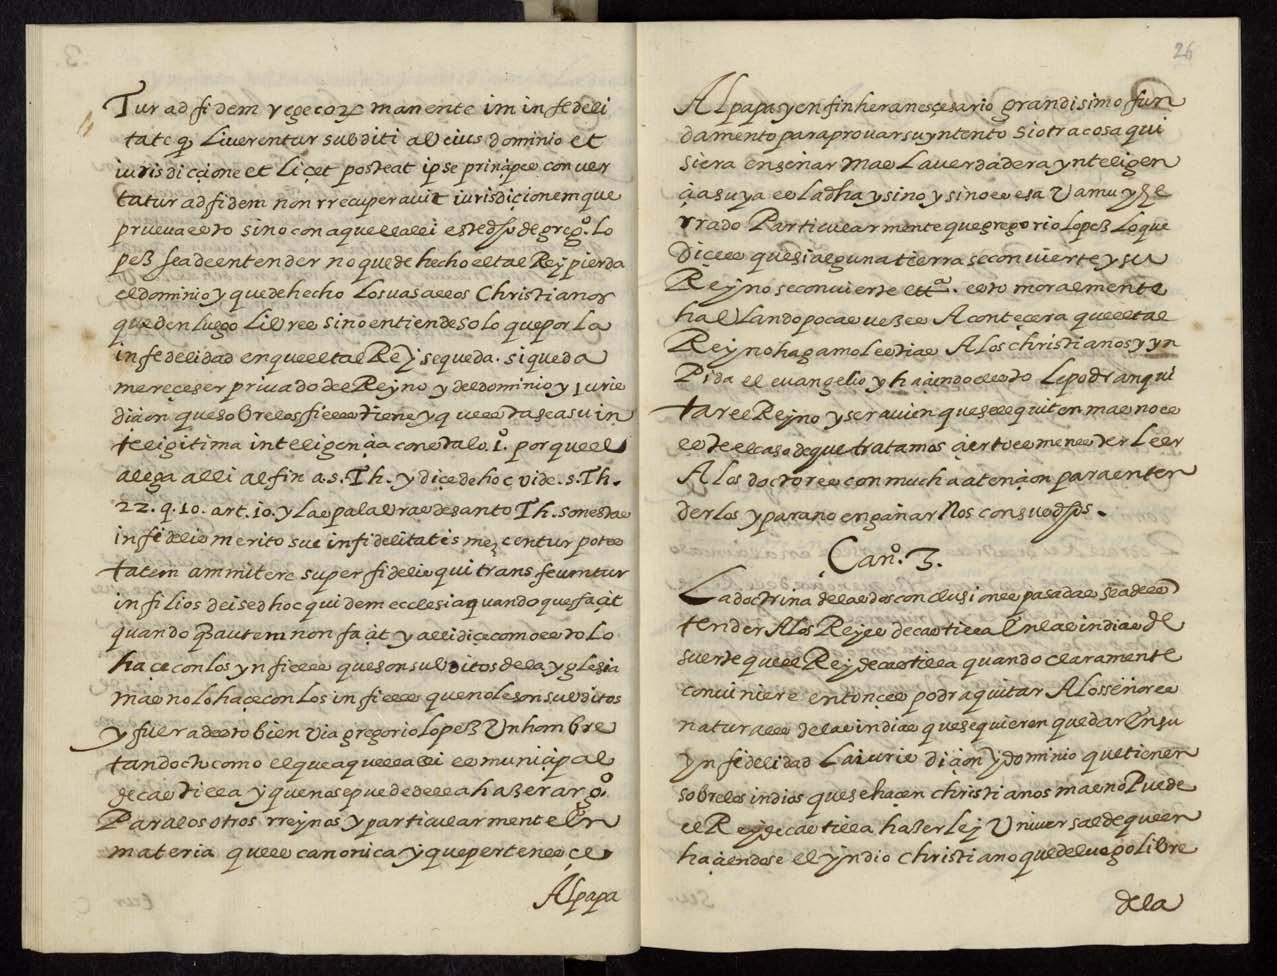 Tur ad fidem rege eorum manente im infedeli
tate q liverentur subditi ab eius dominio et
iurisdiccione et Liçet posteat ipse prinçipes conver
tatur ad fidem non rrecuperavit iurisdiçionem que
prueva esto sino con aquella lei este dho de grego. Lo
pez sea de entender no que de hecho el tal Rey pierda
el dominio y que de hecho Los vasallos Christianos
queden luego Libres sino entiende solo que por La
infedelidad en que el tal Rey se queda. si queda
mereçe ser privado del Reyno y del dominio y Iuris
diçion que sobre los fieles tiene y que esta sea su in
teligitima inteligençia constalo. 1o. porque el
alega alli al fin a. s. Th. y diçe de hoc vide. s. Th.
22. q. 10. art. 10. y Las palabras de santo Th. son estas
infidelis merito sue infidelitatis merentur potes
tatem ammitere super fidelis qui transferuntur
in filios dei sed hoc quidem ecclesia quandoque façit
quandoq autem non façit y alli diçe como esto Lo
haçe con los ynfieles que son subditos de la yglesia
mas no lo haçe con los infieles que no le son subditos
y fuera desto bien via gregorio Lopez Un hombre
tan docto como el que aquella lei es muniçipal
de castilla y que no se puede de ella hazer argo.
Para los otros rreynos y particularmente En
materia que es canonica y que perteneçe
Al papa
26
Al papa y en fin hera nesçesario grandisimo fun
damento para provar su yntento si otra cosa qui
siera enseñar mas La verdadera ynteligen
çia suya es La dha y sino y sino es esa Va muy he
rrado Particularmente que gregorio Lopez Lo que
Diçe es que si alguna tierra se convierte y su
Rey no se convierte etta. esto moralmente
hablando pocas vezes Aconteçera que el tal
Rey no haga molestias A los christianos y yn
Pida el evangelio y haçiendo esto Le podran qui
tar el Reyno y sera vien que se le quiten mas no es
este el caso de que tratamos çierto es menester Leer
A los doctores con mucha atençion para enten
derlos y para no engañarNos con sus dhos.
Can. 3.
La doctrina de las dos conclusiones pasadas sea de en
tender A los Reyes de castilla En las indias de
suerte que el Rey de castilla quando claramente
conviniere entonçes podra quitar A los señores
naturales de las indias que se quieren quedar En su
ynfidelidad La iurisdiçion y dominio que tienen
sobre los indios que se haçen christianos mas no Puede
el Rey de castilla hazer Ley Universal de que en
haçiendose el yndio christiano quede luego libre
de la